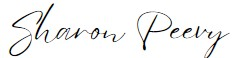 Sharon Peevy